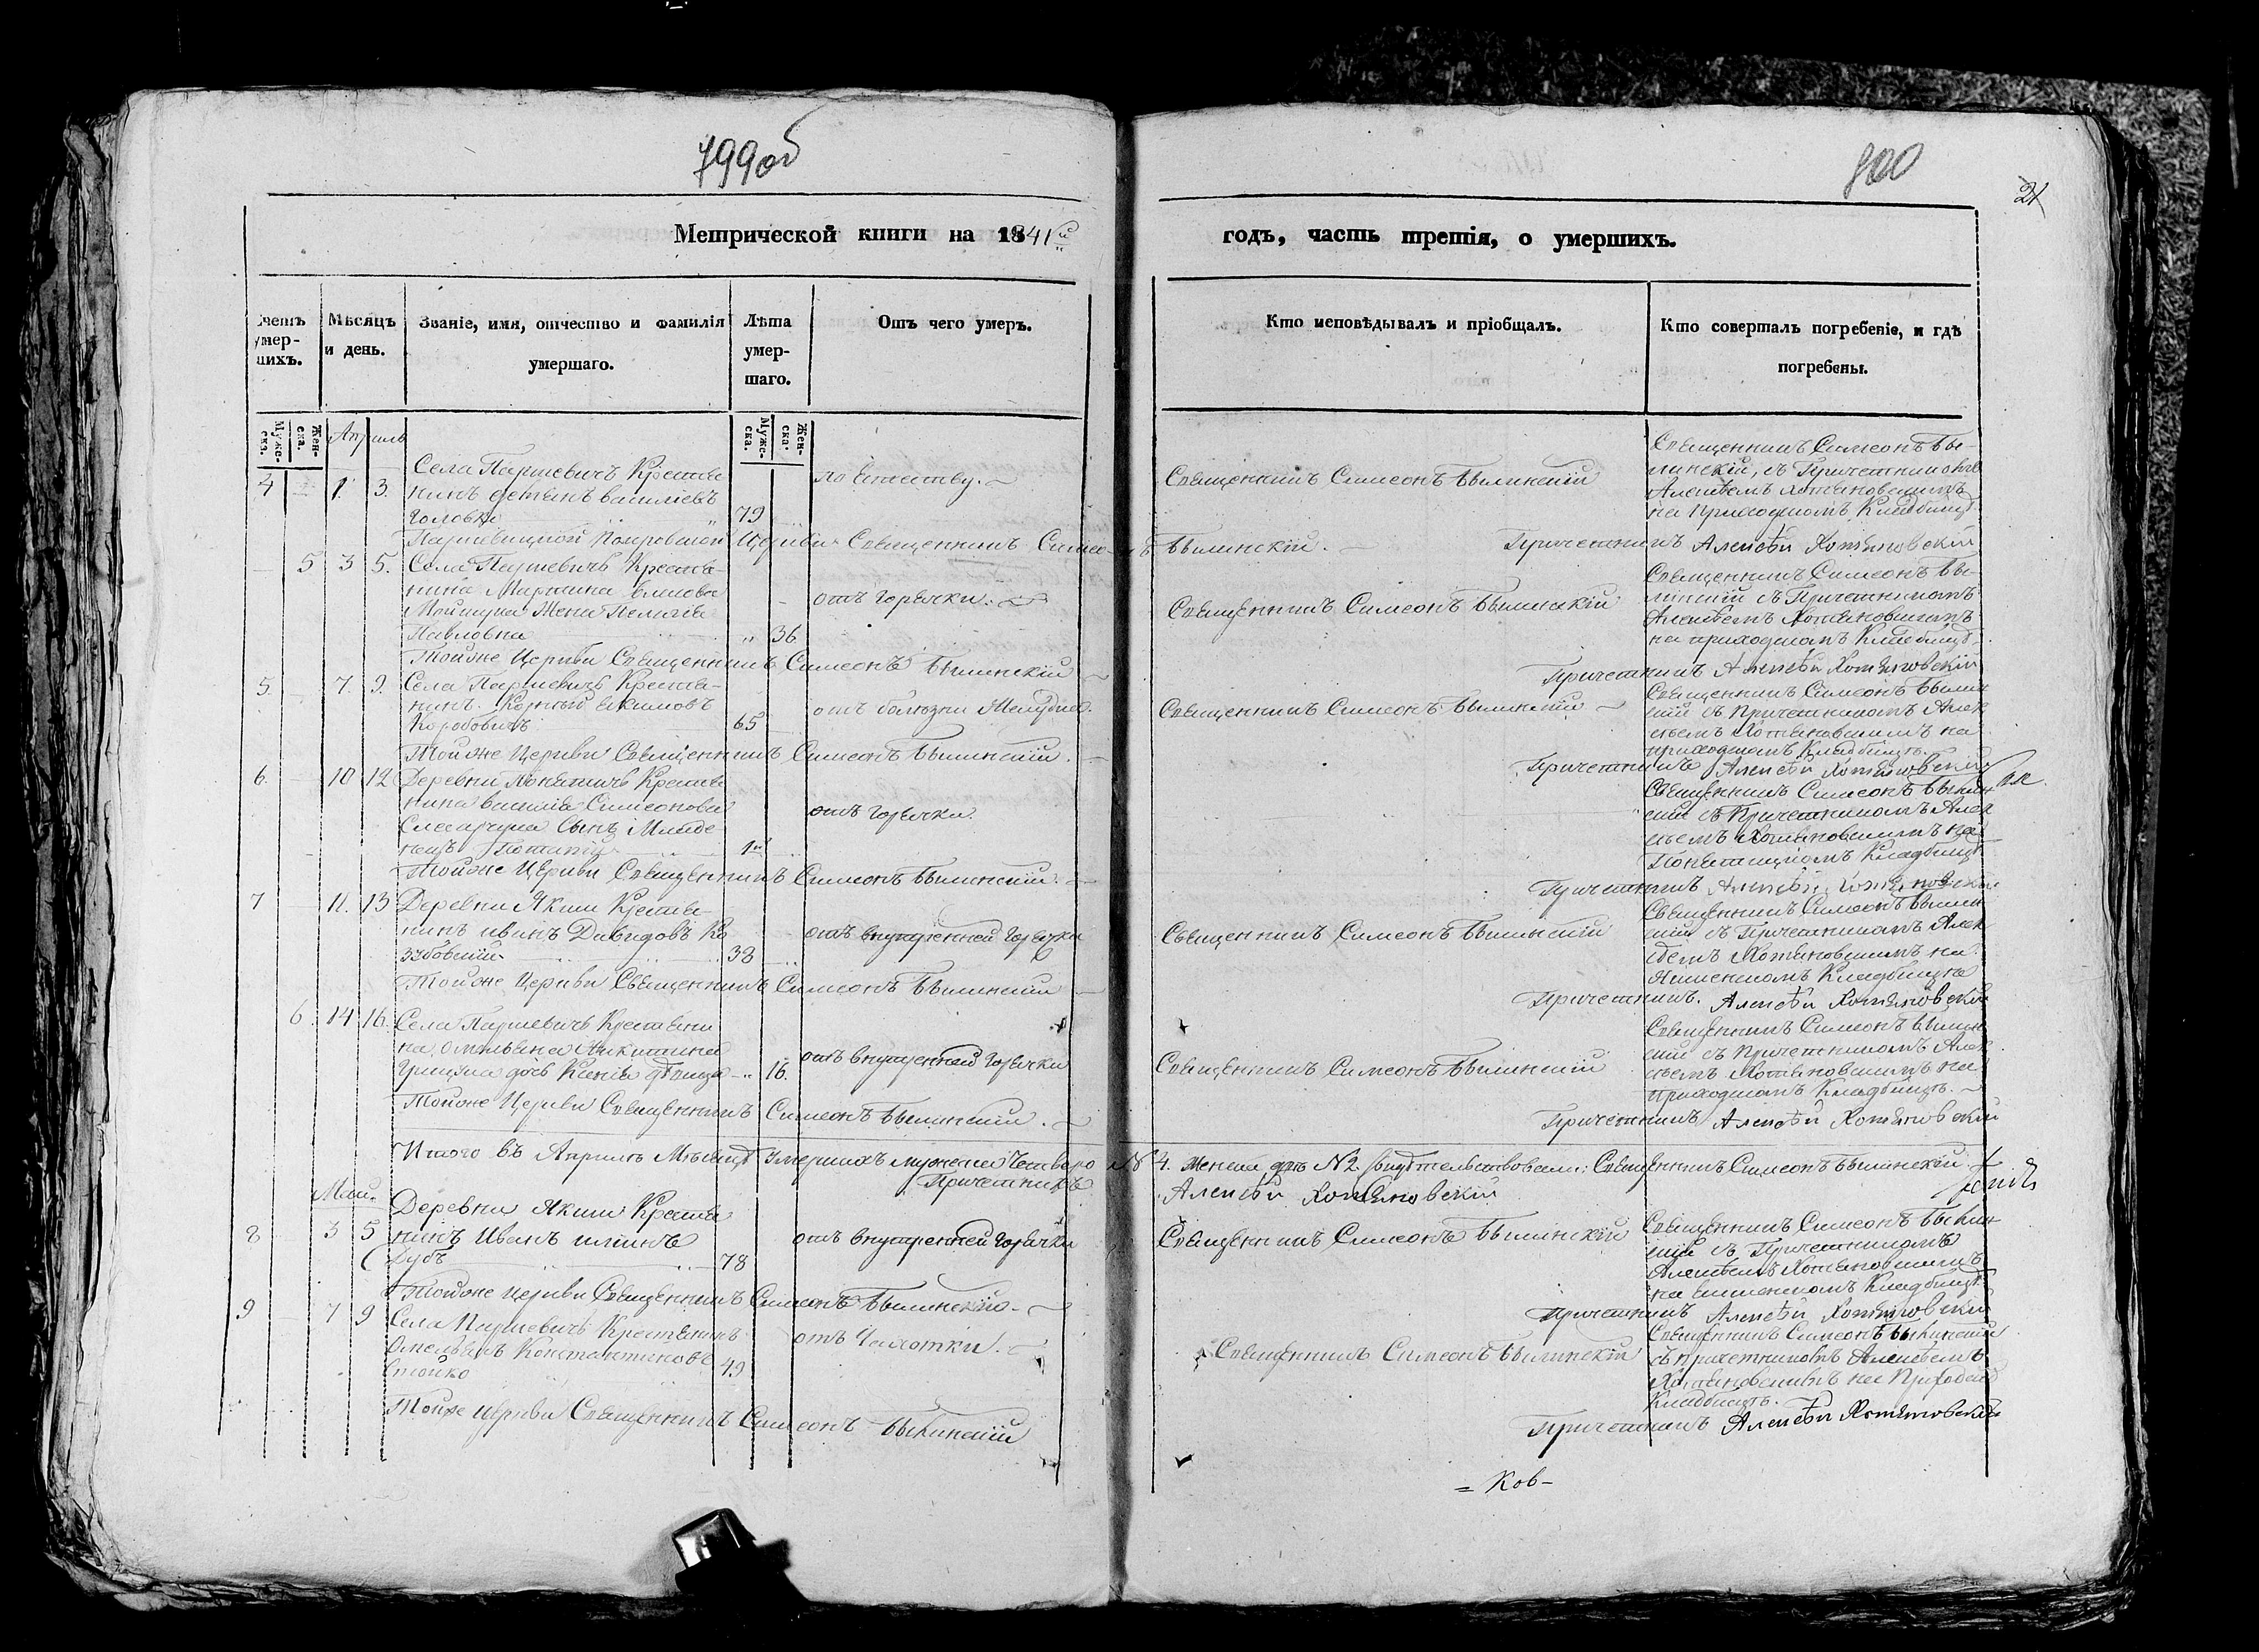 799 об
800
21
Метрической книги на 1841й
годъ, часть третія, о умершихъ.
Счетъ умер-шихъ.
Мѣсяцъ и день.
Званіе, имя, отчество и фамилія умершаго.
Лѣта умер-шаго.
Отъ чего умеръ.
Кто исповѣдывалъ и пріобщалъ.
Кто совершалъ погребеніе, и гдѣ погребены.
Муже-ска.
Жен-ска.
Муже-ска.
Жен-ска.
Апрель
Села Паршевичъ Крестья
4 1. 3.
нинъ
Головка 79
по Естеству.
Священникъ Симеонъ Былинскій
Священникъ Симеонъ Бы-
линскій, съ Причетникомъ
Алексѣемъ Хотяновскимъ
на Приходскомъ Кладбищѣ
Церкви Священникъ Симеонъ Былинскій.
Причетникъ Алексѣй Хотяновскій
5 3 5. Села Паршевичъ Крестья-
нина Мартина
Жена Пелагея
Павловна 36
отъ горячки.
Священникъ Симеонъ Былинскій
Священникъ Симеонъ Бы-
линскій съ Причетникомъ
Алексѣемъ Хотяновскимъ
на приходскомъ Кладбищѣ.
Тойже Церкви Священникъ Симеонъ Былинскій
Причетникъ Алексѣй Хотяновскій
5. 7. 9. Села Паршевичъ Крестья-
нинъ Корнѣй Якимовъ
Коробовичъ 65
отъ болѣзни
Священникъ Симеонъ Былинскій
Священникъ Симеонъ Былин
скій съ Причетникомъ Алек
сѣемъ Хотяновскимъ на
приходскомъ Кладбищѣ.
Тойже Церкви Священникъ Симеонъ Былинскій.
Причетникъ Алексѣй Хотяновскій
6. 10 12 Деревни Крестья
нина Василія Симеонова
Слесарчука Сынъ Младе
нецъ 1
отъ горячки.
Священникъ Симеонъ Былин
скій съ Причетникомъ Алек
сѣемъ Хотяновскимъ на
Кладбищѣ
Тойже Церкви Священникъ Симеонъ Былинскій.
Причетникъ Алексѣй Хотяновскій
7 11. 13 Деревни Якши Крестья-
нинъ Иванъ Давидовъ Ко
зубовскій 38
отъ внутренней горячки
Священникъ Симеонъ Былинскій
Священникъ Симеонъ Былин
скій съ Причетникомъ Алек
сѣемъ Хотяновскимъ на
Якшенскомъ Кладбищѣ
Тойже Церкви Священникъ Симеонъ Былинскій
Причетникъ. Алексѣй Хотяновскій
6. 14 16. Села Паршевичъ Крестьяни
на Омельяна Никитина
Грицука дочь Ксенія дѣвица 16.
отъ внутренней горячки
Священникъ Симеонъ Былинскій
Священникъ Симеонъ Былин
скій съ Причетникомъ Алек
сѣемъ Хотяновскимъ на
приходскомъ Кладбищѣ.
Тойже Церкви Священникъ Симеонъ Былинскій.
Причетникъ Алексѣй Хотяновскій
Итого въ Апрелѣ Мѣсяцѣ Умершихъ мужеска Четверо № 4. Женска двѣ № 2. Свидѣтельствовали: Священникъ Симеонъ Былинскій
Причетникъ Алексѣй Хотяновскій
Май.
Деревни Якши Крестья
8 3 5 нинъ Иванъ Ильинъ
Дубъ 78
отъ внутренней горячки
Священникъ Симеонъ Былинскій
Священникъ Симеонъ Былин
скій съ Причетникомъ
Алексѣемъ Хотяновскимъ
на Якшенскомъ Кладбищѣ
Тойже Церкви Священникъ Симеонъ Былинскій.
Причетникъ Алексѣй Хотяновскій
9 7 9 Села Паршевичъ Крестьянинъ
Омельянъ Константиновъ
Стойко 49
отъ Чахотки.
Священникъ Симеонъ Былинскій
Священникъ Симеонъ Былинскій
съ причетникомъ Алексѣемъ
Хотяновскимъ на Приходскомъ
Кладбищѣ.
Тойже Церкви Священникъ Симеонъ Былинскій
Причетникъ Алексѣй Хотяновскій
= Ков-